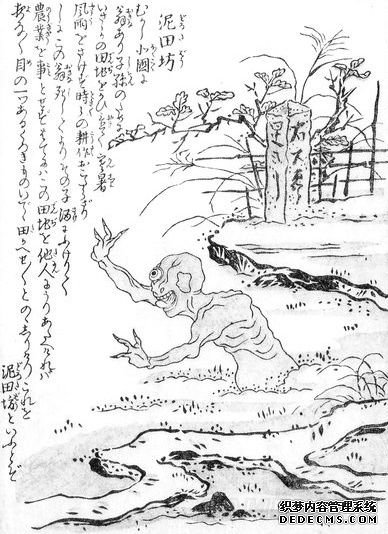 泥田坊
むかし北國に
翁あり子孫のために
いさゝかの田地をかひ置て寒暑
風雨をさけず時〻の耕作おこたらざり
しにこの翁死してよりその子酒にふけりて
農業を事とせずはてにはこの田地を他人にうりあたへければ
夜な〳〵目の一つあるくろきものいでゝ田をかへせ〳〵とのゝしりけりこれを
泥田坊といふとぞ
织梦内容管理系统
DEDECMS.COM